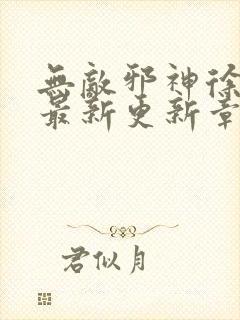 無敵邪神徐
最新更新章
君似月